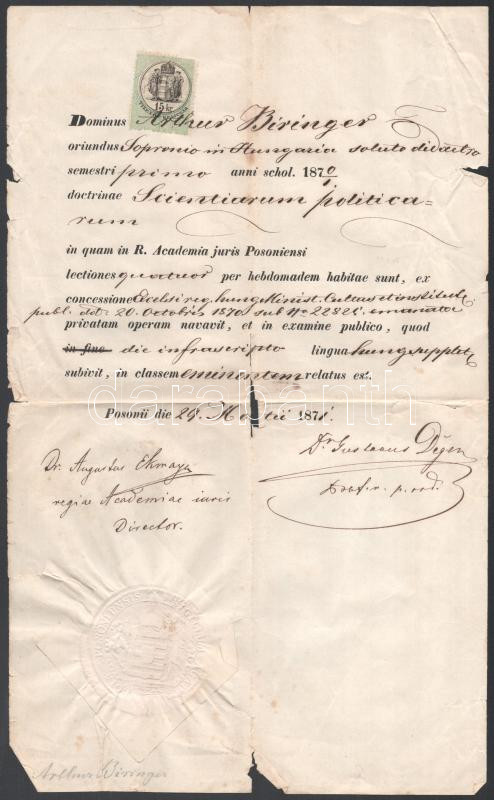 15 kr.
Dominus Arthur Biringer
oriundus Sopronio in Hungaria soluto didactro
semestri primo anni schol. 1870/1
doctrinae Scientiarum politica=
rum
in quam in R. Academia juris Posoniensi
lectiones quatuor per hebdomadem habitae sunt, ex
concessione Excelsi reg. hung. Minist. Cultus et
publ. ddt. 20. Octobris 1870 sub Nr. emanata
privatam operam navavit, et in examine publico, quod
in fine die infrascripto lingua hung. supplet.
subivit, in classem eminentem relatus est.
Posonii die 24. Martii 1871.
Dr. Gustavus
Dr. Augustus
regiae Academiae iuris
Director.
prof. r. p. ord.
Arthur Biringer
darabanth